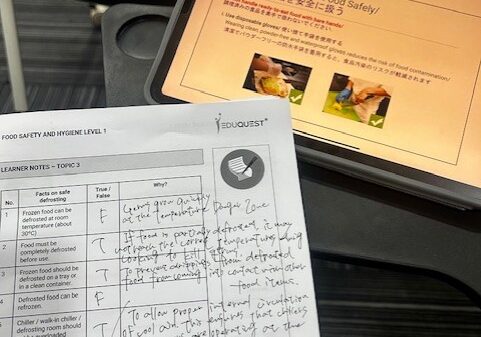 Food Safely/
を安全に扱う
handle ready-to-eat food with bare hands/
調理済みの食品を素手で扱わないでください。
i. Use disposable gloves/ 使い捨て手袋を使用する
Wearing clean, powder-free and waterproof gloves reduces the risk of food contamination/
清潔でパウダーフリーの防水手袋を着用すると、食品汚染のリスクが軽減されます
FOOD SAFETY AND HYGIENE LEVEL 1
EDUQUEST
LEARNER NOTES – TOPIC 3
No.
Facts on safe defrosting
True / False
Why?
1
Frozen food can be
defrosted at room
temperature (about
30°C)
F
Germs grow quickly
at the Temperature Danger Zone
2
Food must be
completely defrosted
before use.
T
If food is partially defrosted, it may
not reach the correct temperatures during
cooking to kill
3
Frozen food should be
defrosted on a tray or
in a clean container.
T
To prevent drippings from defrosted
food from coming into contact with other
food items.
4
Defrosted food can be
refrozen.
F
5
Chiller / walk-in chiller /
defrosting room should
T
To allow proper internal circulation
of cool air. This ensures that chillers
are operating at the